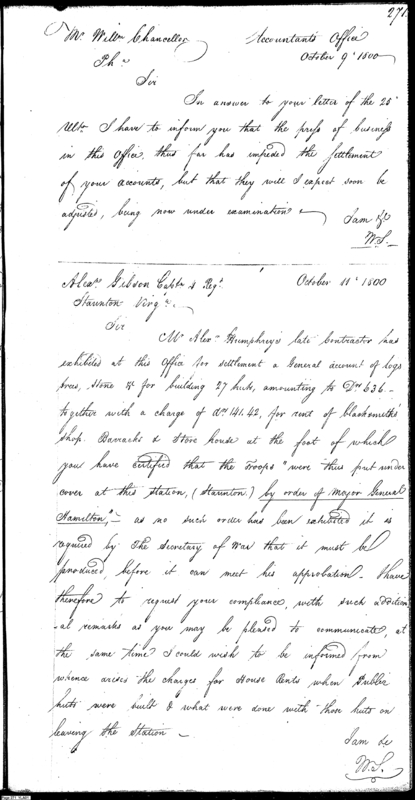 271.
Mr. Willm Chancellor Accountants Office
Pha October 9th 1800
Sir
In answer to your letter of the 25
Ulto. I have to inform you that the press of business
in this Office, thus far has impeded the settlement
of your accounts, but that they will I expect soon be
adjusted, being now under examination
I am &c
W.S.
Alexr. Gibson Captn. 4 Regt. October 11th 1800
Staunton Virga.
Sir
Mr Alexr. Humphreys late Contractor has
exhibited at this Office for settlement a General account of logs
trees, stone &c for building 27 huts, amounting to Drs 636 -
together with a charge of drs 141.42, for rent of blacksmiths
shop. Barracks & Store house at the foot of which
you have certified that the Troops "were thus put under
cover at this station, (Staunton) by order of Major General
Hamilton," - as no such order has been exhibited it is
required by The Secretary of War that it must be
produced, before it can meet his approbation - I have
therefore to request your compliance, with such addition
-al remarks as you may be pleased to communicate, at
the same time I could wish to be informed from
whence arises the charges for House Rents when Public
huts were built & what were done with those huts on
leaving the Station -
I am &c
W.S.